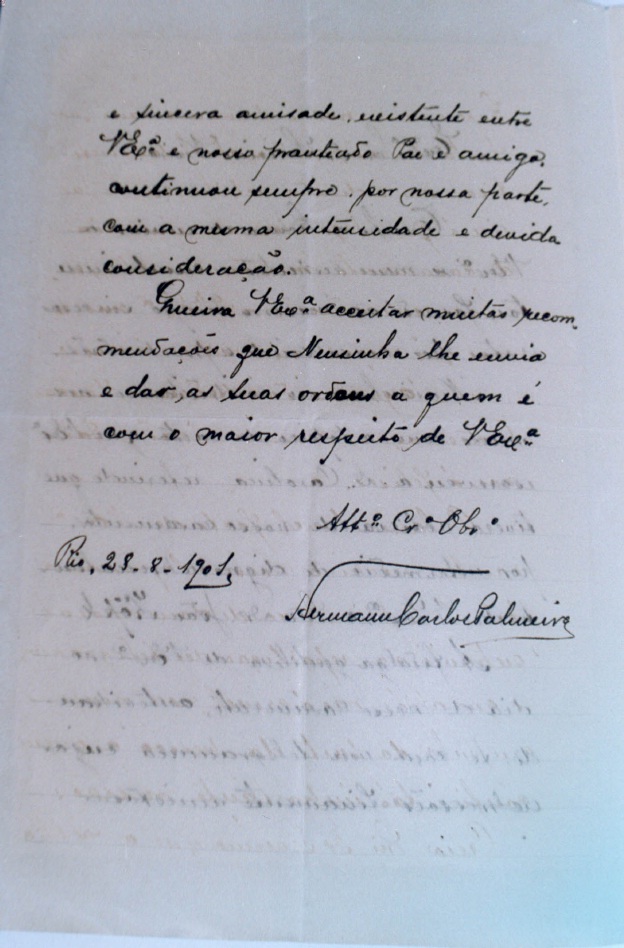 e sincera amisade, existente entre
V Exª e nosso pranteado Pae e amigo,
continuou sempre, por nossa parte,
com a mesma intensidade e devida
consideração.
Queira V Exª acceitar muitas recom-
mendações que Neusinha lhe envia
e dar as suas ordens a quem é
com o maior respeito de V Exª
Attº Crº Obrº
Rio, 28-8-1901,
Hermann Carlos Palmeira